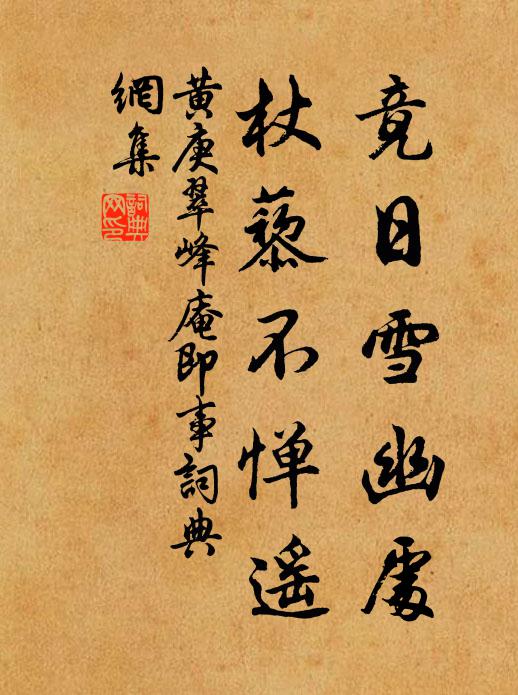 竟日雪幽處
杖藜不惮遥
黄庚翠峰庵即事詞典
網集
詞典
网印